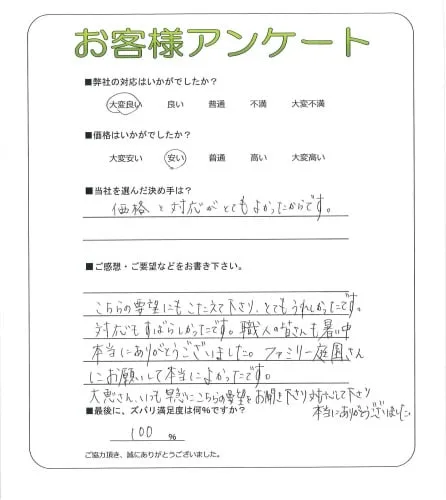 お客様アンケート
■弊社の対応はいかがでしたか？
大変良い 良い 普通 不満 大変不満
■価格はいかがでしたか？
大変安い 安い 普通 高い 大変高い
■当社を選んだ決め手は？
価格と対応がとてもよかったからです。
■ご感想・ご要望などをお書き下さい。
こちらの要望にもこたえて下さり、とてもうれしかったです。
対応もすばらしかったです。職人の皆さんも暑い中
本当にありがとうございました。ファミリー庭園さん
にお願いして本当によかったです。
大恵さん、いつも早急にこちらの要望をお聞き下さり対応して下さり
本当にありがとうございました。
■最後に、ズバリ満足度は何％ですか？
100 %
ご協力頂き、誠にありがとうございました。